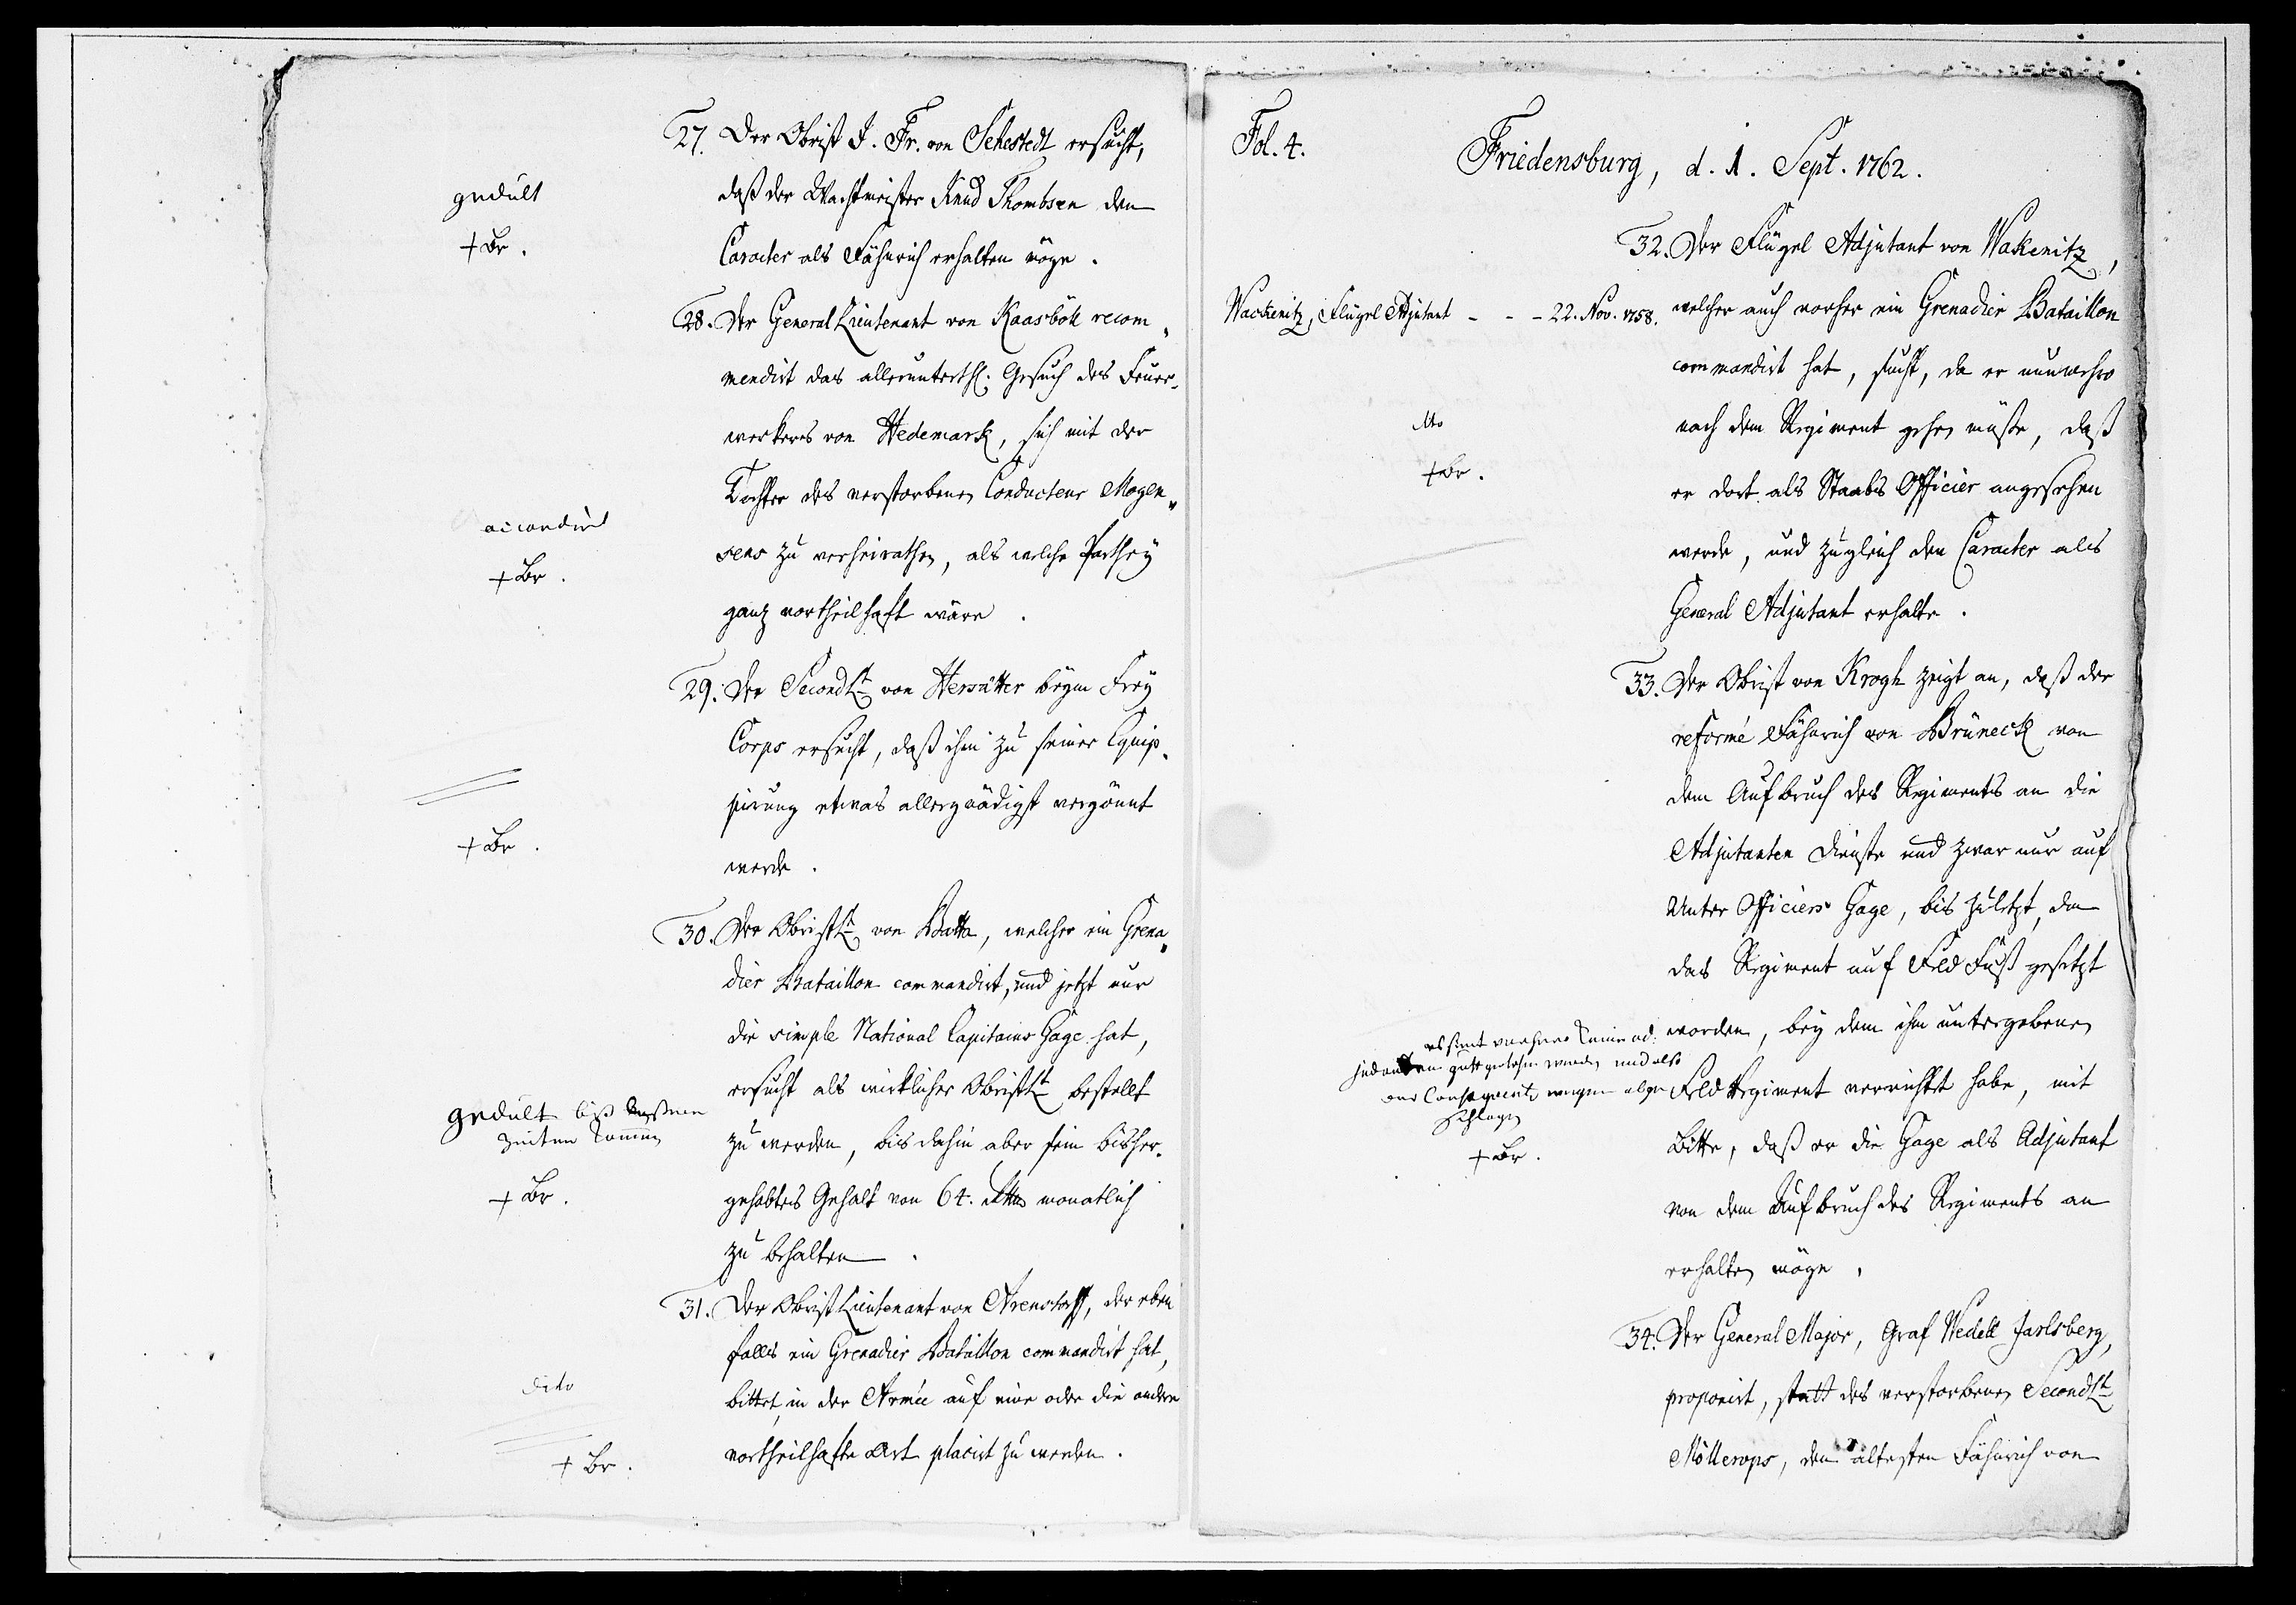 27. Der Obrist J. Fr. von Sehestedt ersucht,
daß der Wachtmeister Knud Thombsen den
Caracter als Fähnrich erhalten möge.
gedult
+ Br.
28. Der General Lieutenant von Kaasböll recom„
mendirt das allerunterth: Gesuch des Feuer„
werkers von Hedemark, sich mit der
Tochter des verstorbenen Conducteur Mogen„
sens zu verheirathen, als welche Parthey
ganz vortheilhaft wäre.
accordirt
+ Br.
29. Der Second Lt von beym Frey
Corps ersucht, daß ihm zu seiner Equip„
pirung etwas allergnädigst vergönnt
werde.
+ Br.
30. Der Obrist Lt von Batta, welcher ein Grena„
dier Bataillon commandirt, und jetzt nur
die simple National Capitains Gage hat,
ersucht als wirklicher Obrist Lt bestellt
zu werden, bis dahin aber sein bisher„
gehabtes Gehalt von 64. monatlich
zu behalten.
gedult biß
zeiten kommen
+ Br.
31. Der Obrist Lieutenant von Arenstorff, der eben
falls ein Grenadier Bataillon commandirt hat,
bittet, in der Armée auf eine oder die andere
vortheilhafte Art placirt zu werden.
dito
+ Br.
Fol. 4.
Friedensburg, d. 1. Sept. 1762.
32. Der Flügel Adjutant von Wakenitz,
Wackenitz, Flügel Adjutant - - - 22. Nov. 1758.
welcher auch vorher ein Grenadier Bataillon
commandirt hat, sucht, da er nunmehro
nach dem Regiment gehen müßte, daß
er dort als Staabs Officier angesehen
werde, und zugleich den Caracter als
General Adjutant erhalte.
+ Br.
33. Der Obrist von Krogh zeigt an, daß der
reformé Fähnrich von Brüneck von
dem Aufbruch des Regiments an die
Adjutanten Dienste und zwar nur auf
Unter Officiers Gage, bis zuletzt, da
das Regiment auf Feld Fuß gesetzt
worden, bey dem ihm untergebenen
Feld Regiment verrichtet habe, mit
Bitte, daß er die Gage als Adjutant
von dem Aufbruch des Regiments an
erhalten möge.
wegen
+ Br.
34. Der General Major, Graf Wedell Jarlsberg,
proponirt, statt des verstorbenen Second Lt
Möllerops, den ältesten Fähnrich von